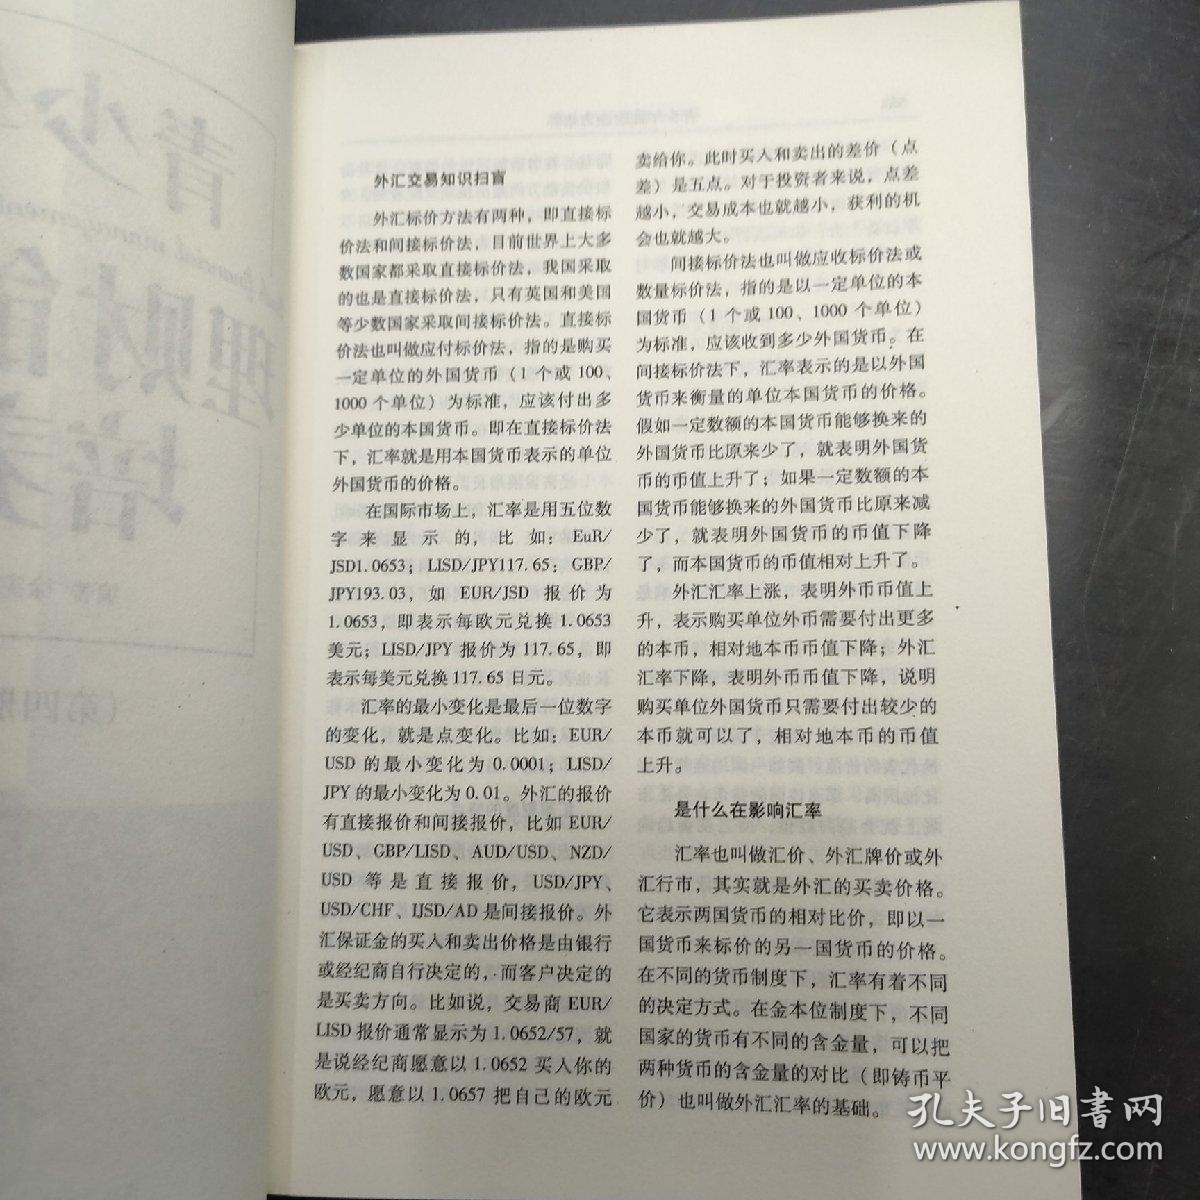 外汇交易知识扫盲
外汇标价方法有两种，即直接标
价法和间接标价法，目前世界上大多
数国家都采取直接标价法，我国采取
的也是直接标价法，只有英国和美国
等少数国家采取间接标价法。直接标
价法也叫做应付标价法，指的是购买
一定单位的外国货币（1个或100、
1000个单位）为标准，应该付出多
少单位的本国货币。即在直接标价法
下，汇率就是用本国货币表示的单位
外国货币的价格。
在国际市场上，汇率是用五位数
字来显示的，比如：EuR/
JSD1.0653；LISD/JPY117.65；GBP/
JPY193.03，如 EUR/JSD 报价为
1.0653，即表示每欧元兑换 1.0653
美元；LISD/JPY 报价为 117.65，即
表示每美元兑换 117.65 日元。
汇率的最小变化是最后一位数字
的变化，就是点变化。比如：EUR/
USD 的最小变化为 0.0001；LISD/
JPY 的最小变化为 0.01。外汇的报价
有直接报价和间接报价，比如 EUR/
USD、GBP/LISD、AUD/USD、NZD/
USD 等是直接报价，USD/JPY、
USD/CHF、IJSD/AD 是间接报价。外
汇保证金的买入和卖出价格是由银行
或经纪商自行决定的，而客户决定的
是买卖方向。比如说，交易商 EUR/
LISD 报价通常显示为 1.0652/57，就
是说经纪商愿意以 1.0652 买人你的
欧元，愿意以 1.0657 把自己的欧元
卖给你。此时买人和卖出的差价（点
差）是五点。对于投资者来说，点差
越小，交易成本也就越小，获利的机
会也就越大。
间接标价法也叫做应收标价法或
数量标价法，指的是以一定单位的本
国货币（1个或100、1000个单位）
为标准，应该收到多少外国货币。在
间接标价法下，汇率表示的是以外国
货币来衡量的单位本国货币的价格。
假如一定数额的本国货币能够换来的
外国货币比原来少了，就表明外国货
币的币值上升了；如果一定数额的本
国货币能够换来的外国货币比原来减
少了，就表明外国货币的币值下降
了，而本国货币的币值相对上升了。
外汇汇率上涨，表明外币币值上
升，表示购买单位外币需要付出更多
的本币，相对地本币币值下降；外汇
汇率下降，表明外币币值下降，说明
购买单位外国货币只需要付出较少的
本币就可以了，相对地本币的币值
上升。
是什么在影响汇率
汇率也叫做汇价、外汇牌价或外
汇行市，其实就是外汇的买卖价格。
它表示两国货币的相对比价，即以一
国货币来标价的另一国货币的价格。
在不同的货币制度下，汇率有着不同
的决定方式。在金本位制度下，不同
国家的货币有不同的含金量，可以把
两种货币的含金量的对比（即铸币平
价）也叫做外汇汇率的基础。
孔夫子旧书网
www.kongfz.com